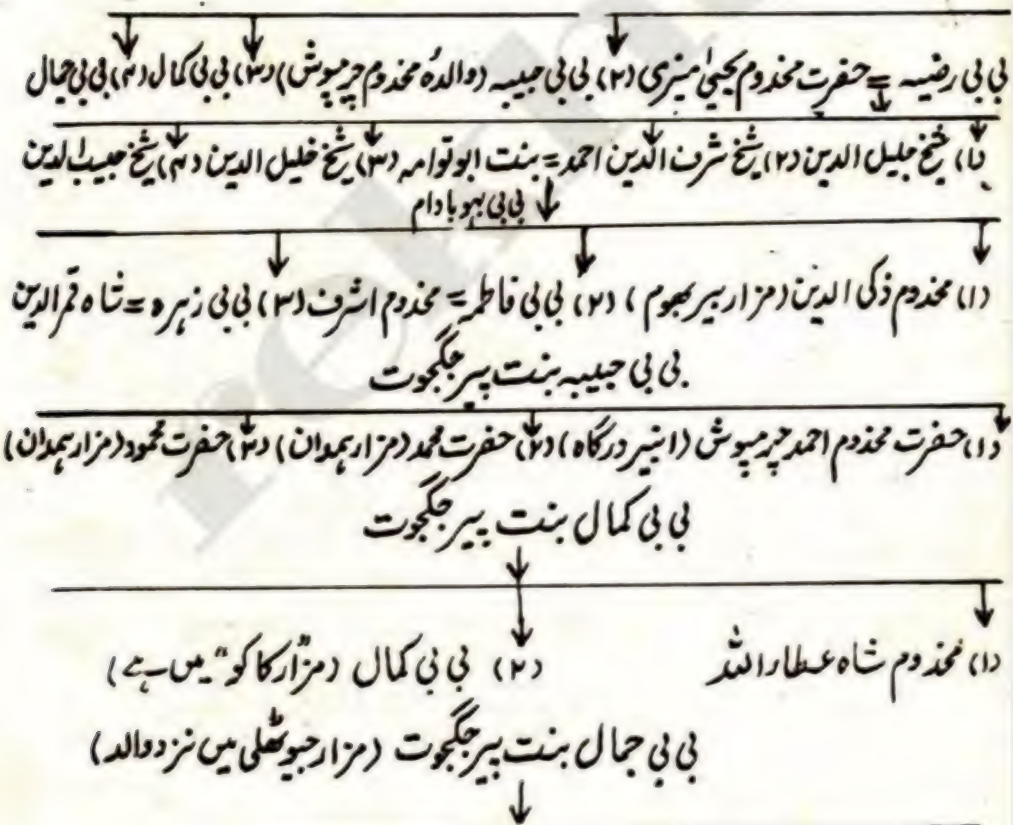 بی بی رضیہ = حضرت مخدوم یحییٰ منیری (۲) بی بی حبیبہ (والدہ مخدوم چرمپوش) (۳) بی بی کمال (۴) بی بی جمال
(۱) شیخ جلیل الدین (۲) شیخ شرف الدین احمد = بنت ابو توامہ (۳) شیخ خلیل الدین (۴) شیخ حبیب الدین
بی بی بہو بادام
(۱) مخدوم ذکی الدین (مزار بیر بھوم) (۲) بی بی فاطمہ = مخدوم اشرف (۳) بی بی زہرہ = شاہ قمر الدین
بی بی حبیبہ بنت پیر جگجوت
(۱) حضرت مخدوم احمد چرمپوش (انبیر درگاہ) (۲) حضرت محمد (مزار ہمدان) (۳) حضرت محمود (مزار ہمدان)
بی بی کمال بنت پیر جگجوت
(۱) مخدوم شاہ عطار اللہ (۲) بی بی کمال (مزار "کاکو" میں ہے)
بی بی جمال بنت پیر جگجوت (مزار جیوٹھلی میں نزد والد)